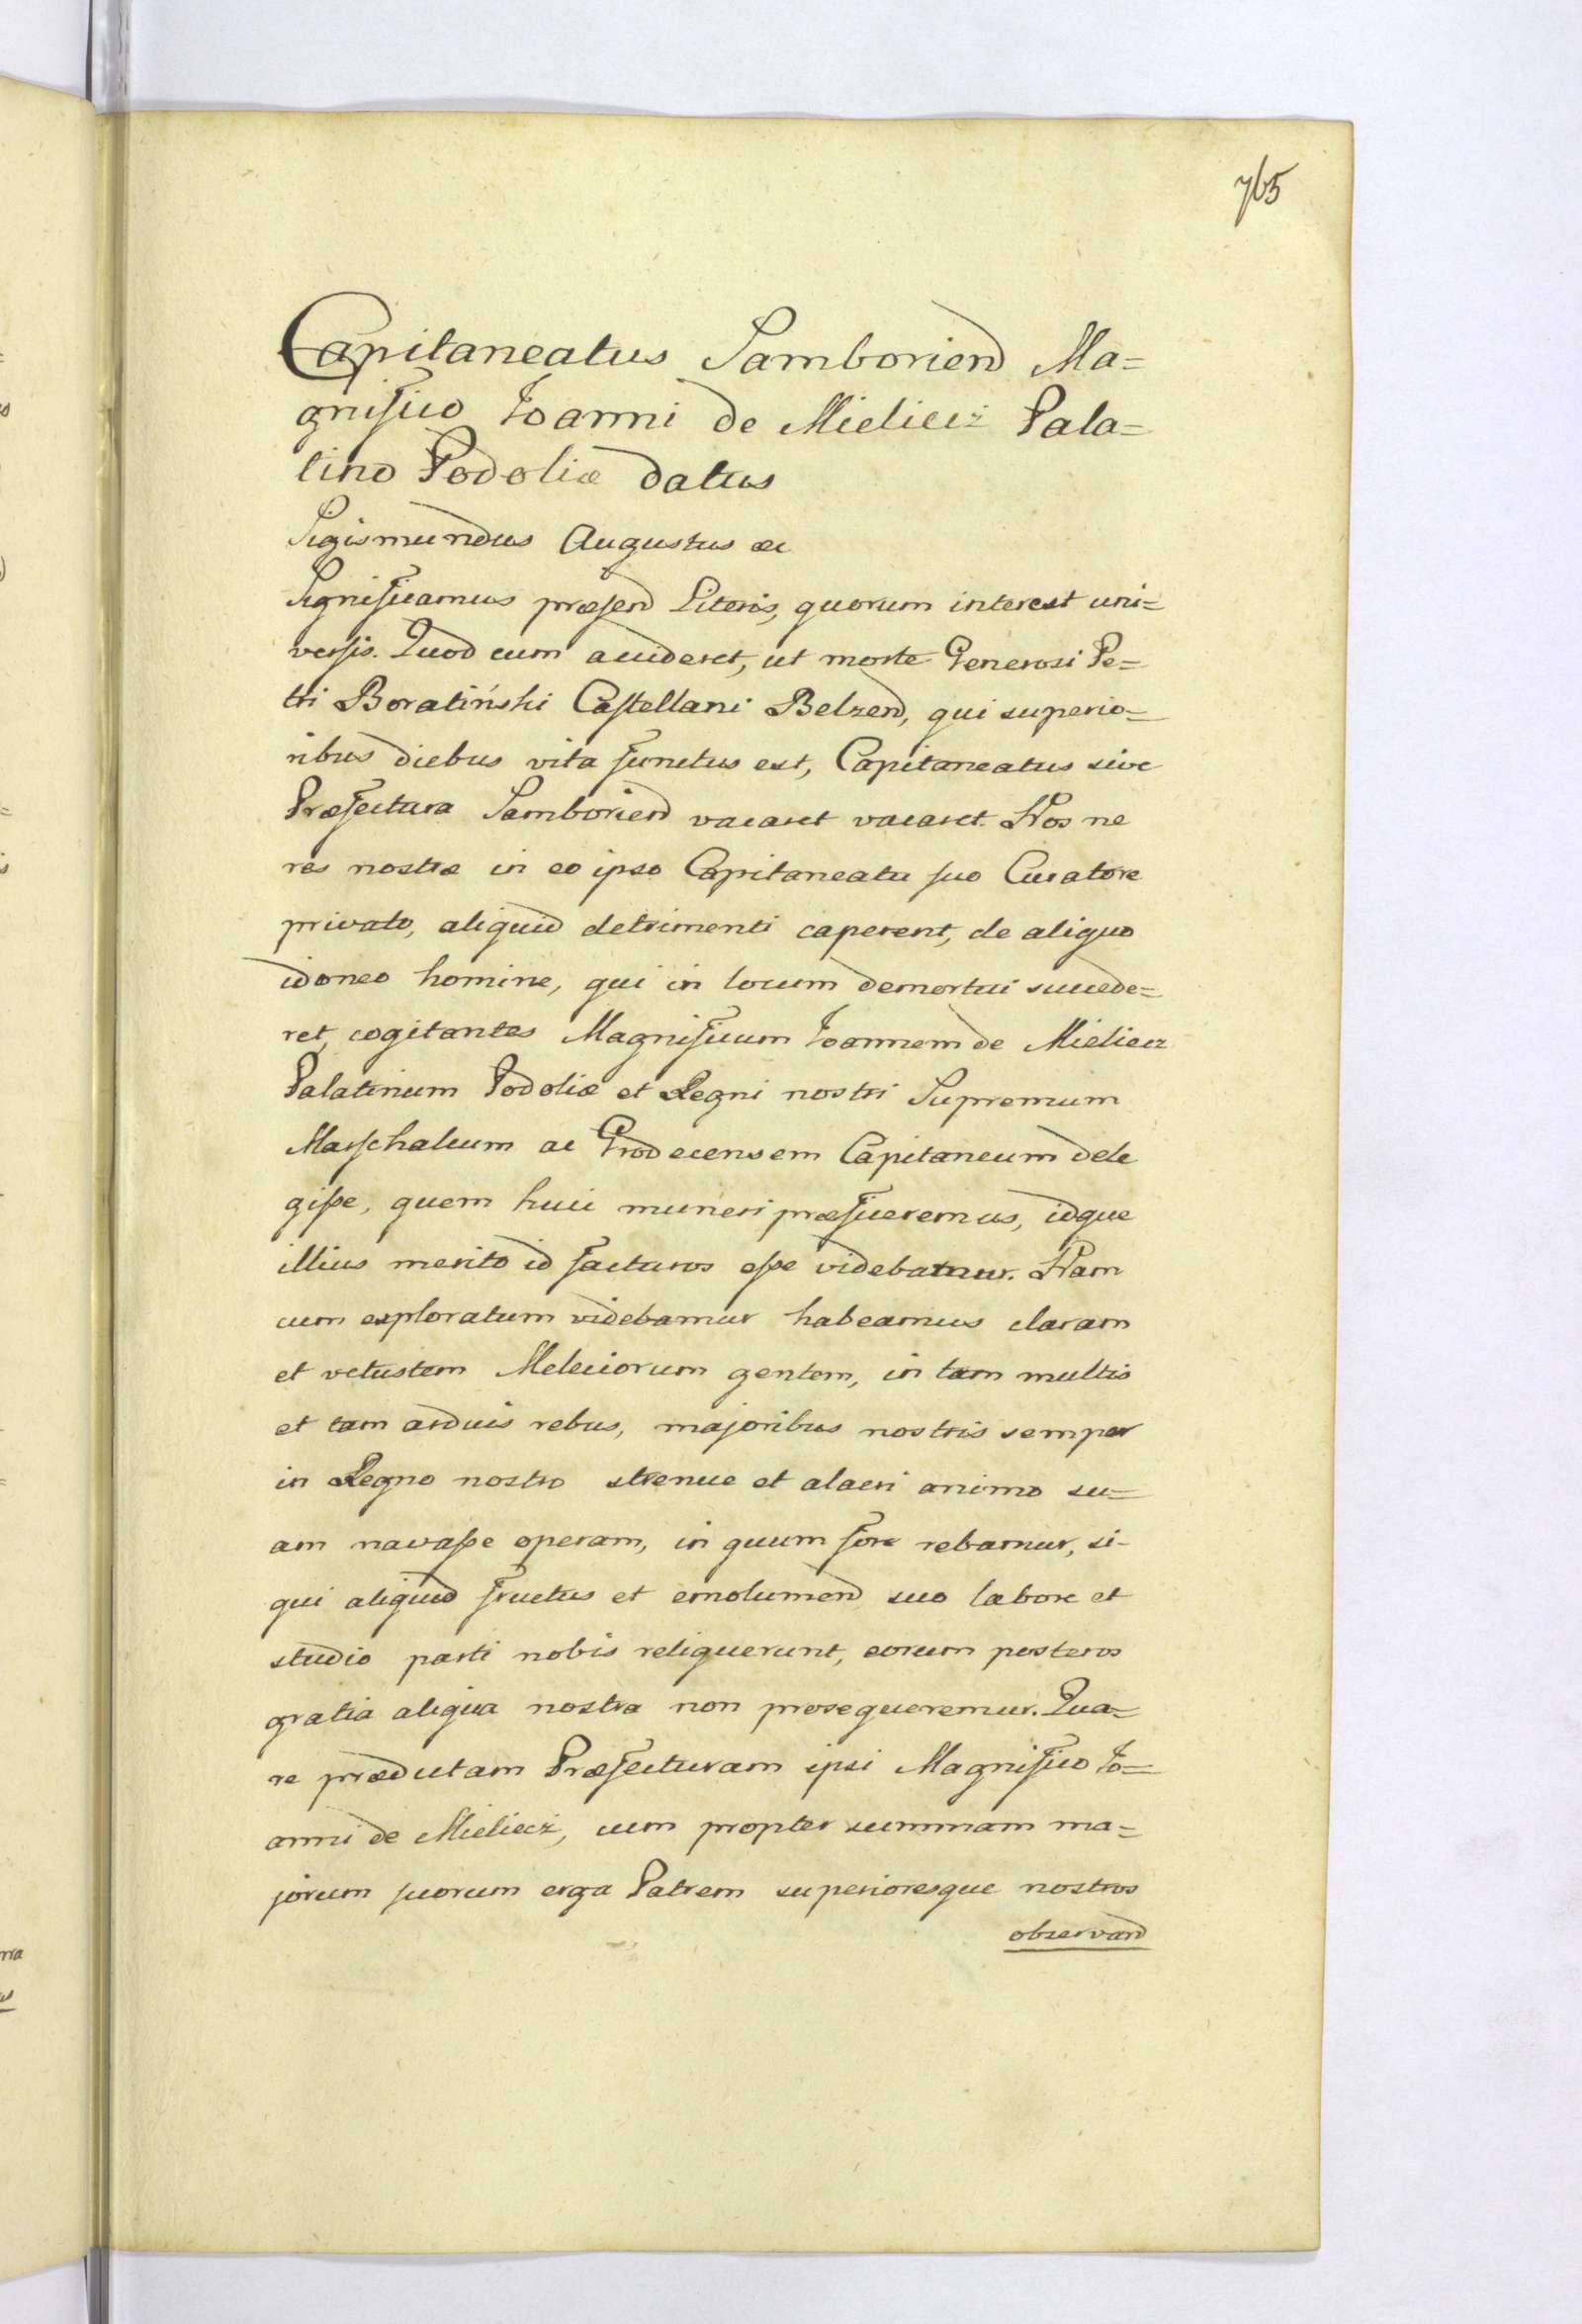 765
Capitaneatus Samboriend Ma=
gnifico Joanni de Mieliecz Pala=
tino Podoliæ datus
Sigismundus Augustus &c
Significamus præsend Literis, quorum interest uni=
versis. Quod cum accideret, ut morte Generosi Pe=
tri Boratiński Castellani Belzend, qui superio=
ribus diebus vita functus est, Capitaneatus sive
Præfectura Samboriend vacaret vacaret. Nos ne
res nostræ in eo ipso Capitaneatu suo Curatore
privato, aliquid detrimenti caperent, de aliquo
idoneo homine, qui in locum demortui succede=
ret, cogitantes Magnificum Joannem de Mieliecz
Palatinum Podoliæ et Regni nostri Supremum
Marschalcum ac Grodecensem Capitaneum dele
gisse, quem huic muneri præficeremus, idque
illius merito id facturos esse videbamur. Nam
cum exploratum videbamur habeamus claram
et vetustam Meleciorum gentem, in tam multis
et tam arduis rebus, majoribus nostris semper
in Regno nostro strenue et alacri animo su=
am navasse operam, in quum fore rebamur, si-
qui aliquid fructus et emolumend suo labore et
studio parti nobis reliquerunt, eorum posteros
gratia aliqua nostra non prosequeremur. Qua=
re prædictam Præfecturam ipsi Magnifico Jo=
anni de Mieliecż, cum propter summam ma=
jorum suorum erga Patrem superioresque nostros
observand